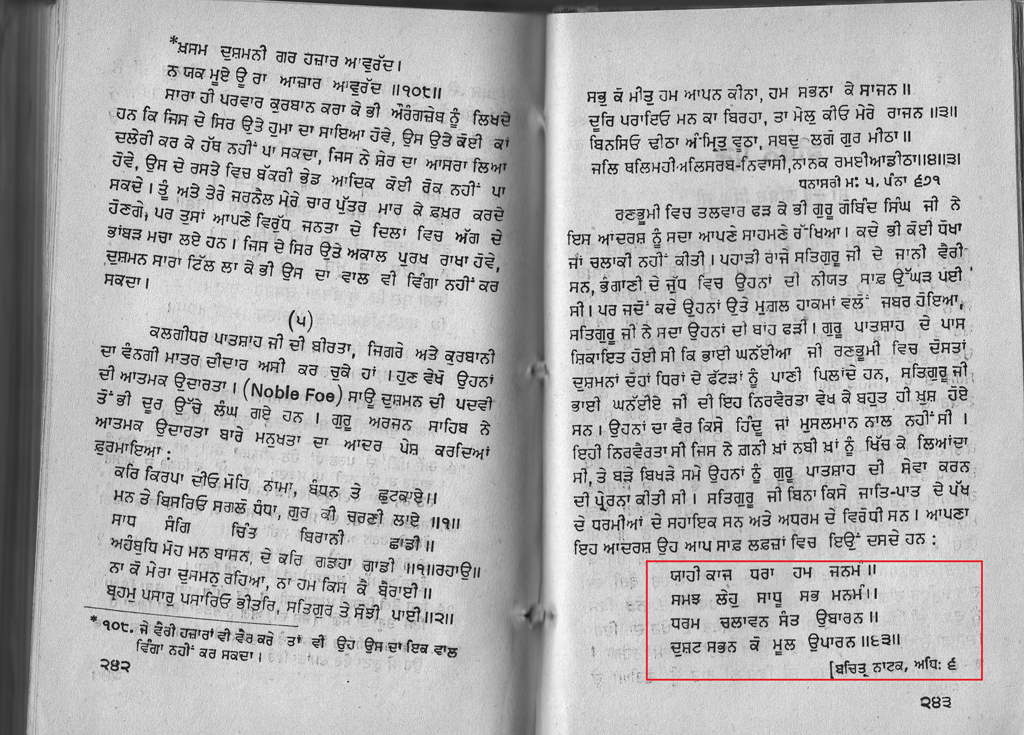 *ਖ਼ਸਮ ਦੁਸ਼ਮਨੀ ਗਰ ਹਜ਼ਾਰ ਆਵੁਰੱਦ।
ਨ ਯਕ ਮੂਏ ਊ ਰਾ ਆਜ਼ਾਰ ਆਵੁਰੱਦ ॥੧੦੮॥
ਸਾਰਾ ਹੀ ਪਰਵਾਰ ਕੁਰਬਾਨ ਕਰਾ ਕੇ ਭੀ ਔਰੰਗਜ਼ੇਬ ਨੂੰ ਲਿਖਦੇ
ਹਨ ਕਿ ਜਿਸ ਦੇ ਸਿਰ ਉਤੇ ਹੁਮਾ ਦਾ ਸਾਇਆ ਹੋਵੇ, ਉਸ ਉਤੇ ਕੋਈ ਕਾਂ
ਦਲੇਰੀ ਕਰ ਕੇ ਹੱਥ ਨਹੀਂ ਪਾ ਸਕਦਾ, ਜਿਸ ਨੇ ਸ਼ੇਰ ਦਾ ਆਸਰਾ ਲਿਆ
ਹੋਵੇ, ਉਸ ਦੇ ਰਸਤੇ ਵਿਚ ਬੱਕਰੀ ਭੇਡ ਆਦਿਕ ਕੋਈ ਰੋਕ ਨਹੀਂ ਪਾ
ਸਕਦੇ। ਤੂੰ ਅਤੇ ਤੇਰੇ ਜਰਨੈਲ ਮੇਰੇ ਚਾਰ ਪੁੱਤਰ ਮਾਰ ਕੇ ਫ਼ਖ਼ਰ ਕਰਦੇ
ਹੋਣਗੇ, ਪਰ ਤੁਸਾਂ ਆਪਣੇ ਵਿਰੁੱਧ ਜਨਤਾ ਦੇ ਦਿਲਾਂ ਵਿਚ ਅੱਗ ਦੇ
ਭਾਂਬੜ ਮਚਾ ਲਏ ਹਨ। ਜਿਸ ਦੇ ਸਿਰ ਉਤੇ ਅਕਾਲ ਪੁਰਖ ਰਾਖਾ ਹੋਵੇ,
ਦੁਸ਼ਮਨ ਸਾਰਾ ਟਿੱਲ ਲਾ ਕੇ ਭੀ ਉਸ ਦਾ ਵਾਲ ਵੀ ਵਿੰਗਾ ਨਹੀਂ ਕਰ
ਸਕਦਾ।
(੫)
ਕਲਗੀਧਰ ਪਾਤਸ਼ਾਹ ਜੀ ਦੀ ਬੀਰਤਾ, ਜਿਗਰੇ ਅਤੇ ਕੁਰਬਾਨੀ
ਦਾ ਵੰਨਗੀ ਮਾਤਰ ਦੀਦਾਰ ਅਸੀ ਕਰ ਚੁਕੇ ਹਾਂ। ਹੁਣ ਵੇਖੋ ਉਹਨਾਂ
ਦੀ ਆਤਮਕ ਉਦਾਰਤਾ। (Noble Foe) ਸਾਊ ਦੁਸ਼ਮਨ ਦੀ ਪਦਵੀ
ਤੋਂ ਭੀ ਦੂਰ ਉੱਚੇ ਲੰਘ ਗਏ ਹਨ। ਗੁਰੂ ਅਰਜਨ ਸਾਹਿਬ ਨੇ
ਆਤਮਕ ਉਦਾਰਤਾ ਬਾਰੇ ਮਨੁਖਤਾ ਦਾ ਆਦਰ ਪੇਸ਼ ਕਰਦਿਆਂ
ਫ਼ੁਰਮਾਇਆ :
ਕਰਿ ਕਿਰਪਾ ਦੀਓ ਮੋਹਿ ਨਾਮਾ, ਬੰਧਨ ਤੇ ਛੁਟਕਾਏ॥
ਮਨ ਤੇ ਬਿਸਰਿਓ ਸਗਲੋ ਧੰਧਾ, ਗੁਰ ਕੀ ਚਰਣੀ ਲਾਏ ॥੧॥
ਸਾਧ ਸੰਗਿ ਚਿੰਤ ਬਿਰਾਨੀ ਛਾਡੀ॥
ਅਹੰਬੁਧਿ ਮੋਹ ਮਨ ਬਾਸਨ, ਦੇ ਕਰਿ ਗਡਹਾ ਗਾਡੀ ॥੧॥ਰਹਾਉ॥
ਨਾ ਕੋ ਮੇਰਾ ਦੁਸਮਨੁ ਰਹਿਆ, ਨਾ ਹਮ ਕਿਸ ਕੇ ਬੈਰਾਈ॥
ਬ੍ਰਹਮੁ ਪਸਾਰੁ ਪਸਾਰਿਓ ਭੀਤਰਿ, ਸਤਿਗੁਰ ਤੇ ਸੋਝੀ ਪਾਈ॥੨॥
* ੧੦੮. ਜੇ ਵੈਰੀ ਹਜ਼ਾਰਾਂ ਵੀ ਵੈਰ ਕਰੇ ਤਾਂ ਵੀ ਉਹ ਉਸ ਦਾ ਇਕ ਵਾਲ
ਵਿੰਗਾ ਨਹੀਂ ਕਰ ਸਕਦਾ।
੨੪੨
ਸਭੁ ਕੋ ਮੀਤੁ ਹਮ ਆਪਨ ਕੀਨਾ, ਹਮ ਸਭਨਾ ਕੇ ਸਾਜਨ॥
ਦੂਰਿ ਪਰਾਇਓ ਮਨ ਕਾ ਬਿਰਹਾ, ਤਾ ਮੇਲੁ ਕੀਓ ਮੇਰੇ ਰਾਜਨ ॥੩॥
ਬਿਨਸਿਓ ਢੀਠਾ ਅੰਮ੍ਰਿਤੁ ਵੂਠਾ, ਸਬਦੁ ਲਗੋ ਗੁਰ ਮੀਠਾ॥
ਜਲਿ ਥਲਿਮਹੀਅਲਿਸਰਬ-ਨਿਵਾਸੀ,ਨਾਨਕ ਰਮਈਆਡੀਠਾ॥੪॥੩।
ਧਨਾਸਰੀ ਮ: ੫, ਪੰਨਾ ੬੭੧
ਰਣਭੂਮੀ ਵਿਚ ਤਲਵਾਰ ਫੜ ਕੇ ਭੀ ਗੁਰੂ ਗੋਬਿੰਦ ਸਿੰਘ ਜੀ ਨੇ
ਇਸ ਆਦਰਸ਼ ਨੂੰ ਸਦਾ ਆਪਣੇ ਸਾਹਮਣੇ ਰੱਖਿਆ। ਕਦੇ ਭੀ ਕੋਈ ਧੋਖਾ
ਜਾਂ ਚਲਾਕੀ ਨਹੀਂ ਕੀਤੀ। ਪਹਾੜੀ ਰਾਜੇ ਸਤਿਗੁਰੂ ਜੀ ਦੇ ਜਾਨੀ ਵੈਰੀ
ਸਨ, ਭੰਗਾਣੀ ਦੇ ਜੁੱਧ ਵਿਚ ਉਹਨਾਂ ਦੀ ਨੀਯਤ ਸਾਫ਼ ਉੱਘੜ ਪਈ
ਸੀ। ਪਰ ਜਦੋਂ ਕਦੇ ਉਹਨਾਂ ਉਤੇ ਮੁਗ਼ਲ ਹਾਕਮਾਂ ਵਲੋਂ ਜਬਰ ਹੋਇਆ,
ਸਤਿਗੁਰੂ ਜੀ ਨੇ ਸਦਾ ਉਹਨਾਂ ਦੀ ਬਾਂਹ ਫੜੀ। ਗੁਰੂ ਪਾਤਸ਼ਾਹ ਦੇ ਪਾਸ
ਸ਼ਿਕਾਇਤ ਹੋਈ ਸੀ ਕਿ ਭਾਈ ਘਨੱਈਆ ਜੀ ਰਣਭੂਮੀ ਵਿਚ ਦੋਸਤਾਂ
ਦੁਸ਼ਮਨਾਂ ਦੋਹਾਂ ਧਿਰਾਂ ਦੇ ਫੱਟੜਾਂ ਨੂੰ ਪਾਣੀ ਪਿਲਾਂਦੇ ਹਨ, ਸਤਿਗੁਰੂ ਜੀ
ਭਾਈ ਘਨੱਈਏ ਜੀ ਦੀ ਇਹ ਨਿਰਵੈਰਤਾ ਵੇਖ ਕੇ ਬਹੁਤ ਹੀ ਖ਼ੁਸ਼ ਹੋਏ
ਸਨ। ਉਹਨਾਂ ਦਾ ਵੈਰ ਕਿਸੇ ਹਿੰਦੂ ਜਾਂ ਮੁਸਲਮਾਨ ਨਾਲ ਨਹੀਂ ਸੀ।
ਇਹੀ ਨਿਰਵੈਰਤਾ ਸੀ ਜਿਸ ਨੇ ਗ਼ਨੀ ਖ਼ਾਂ ਨਬੀ ਖ਼ਾਂ ਨੂੰ ਖਿੱਚ ਕੇ ਲਿਆਂਦਾ
ਸੀ, ਤੇ ਬੜੇ ਬਿਖੜੇ ਸਮੇ ਉਹਨਾਂ ਨੂੰ ਗੁਰੂ ਪਾਤਸ਼ਾਹ ਦੀ ਸੇਵਾ ਕਰਨ
ਦੀ ਪ੍ਰੇਰਨਾ ਕੀਤੀ ਸੀ। ਸਤਿਗੁਰੂ ਜੀ ਬਿਨਾ ਕਿਸੇ ਜਾਤਿ-ਪਾਤ ਦੇ ਪੱਖ
ਦੇ ਧਰਮੀਆਂ ਦੇ ਸਹਾਇਕ ਸਨ ਅਤੇ ਅਧਰਮ ਦੇ ਵਿਰੋਧੀ ਸਨ। ਆਪਣਾ
ਇਹ ਆਦਰਸ਼ ਉਹ ਆਪ ਸਾਫ਼ ਲਫ਼ਜ਼ਾਂ ਵਿਚ ਇਉਂ ਦਸਦੇ ਹਨ :
ਯਾਹੀ ਕਾਜ ਧਰਾ ਹਮ ਜਨਮੰ॥
ਸਮਝ ਲੇਹੁ ਸਾਧੂ ਸਭ ਮਨਮੰ।।
ਧਰਮ ਚਲਾਵਨ ਸੰਤ ਉਬਾਰਨ॥
ਦੁਸ਼ਟ ਸਭਨ ਕੋ ਮੂਲ ਉਪਾਰਨ॥੬੩॥
[ਬਚਿਤ੍ਰ ਨਾਟਕ, ਅਧਿ: ੬
੨੪੩